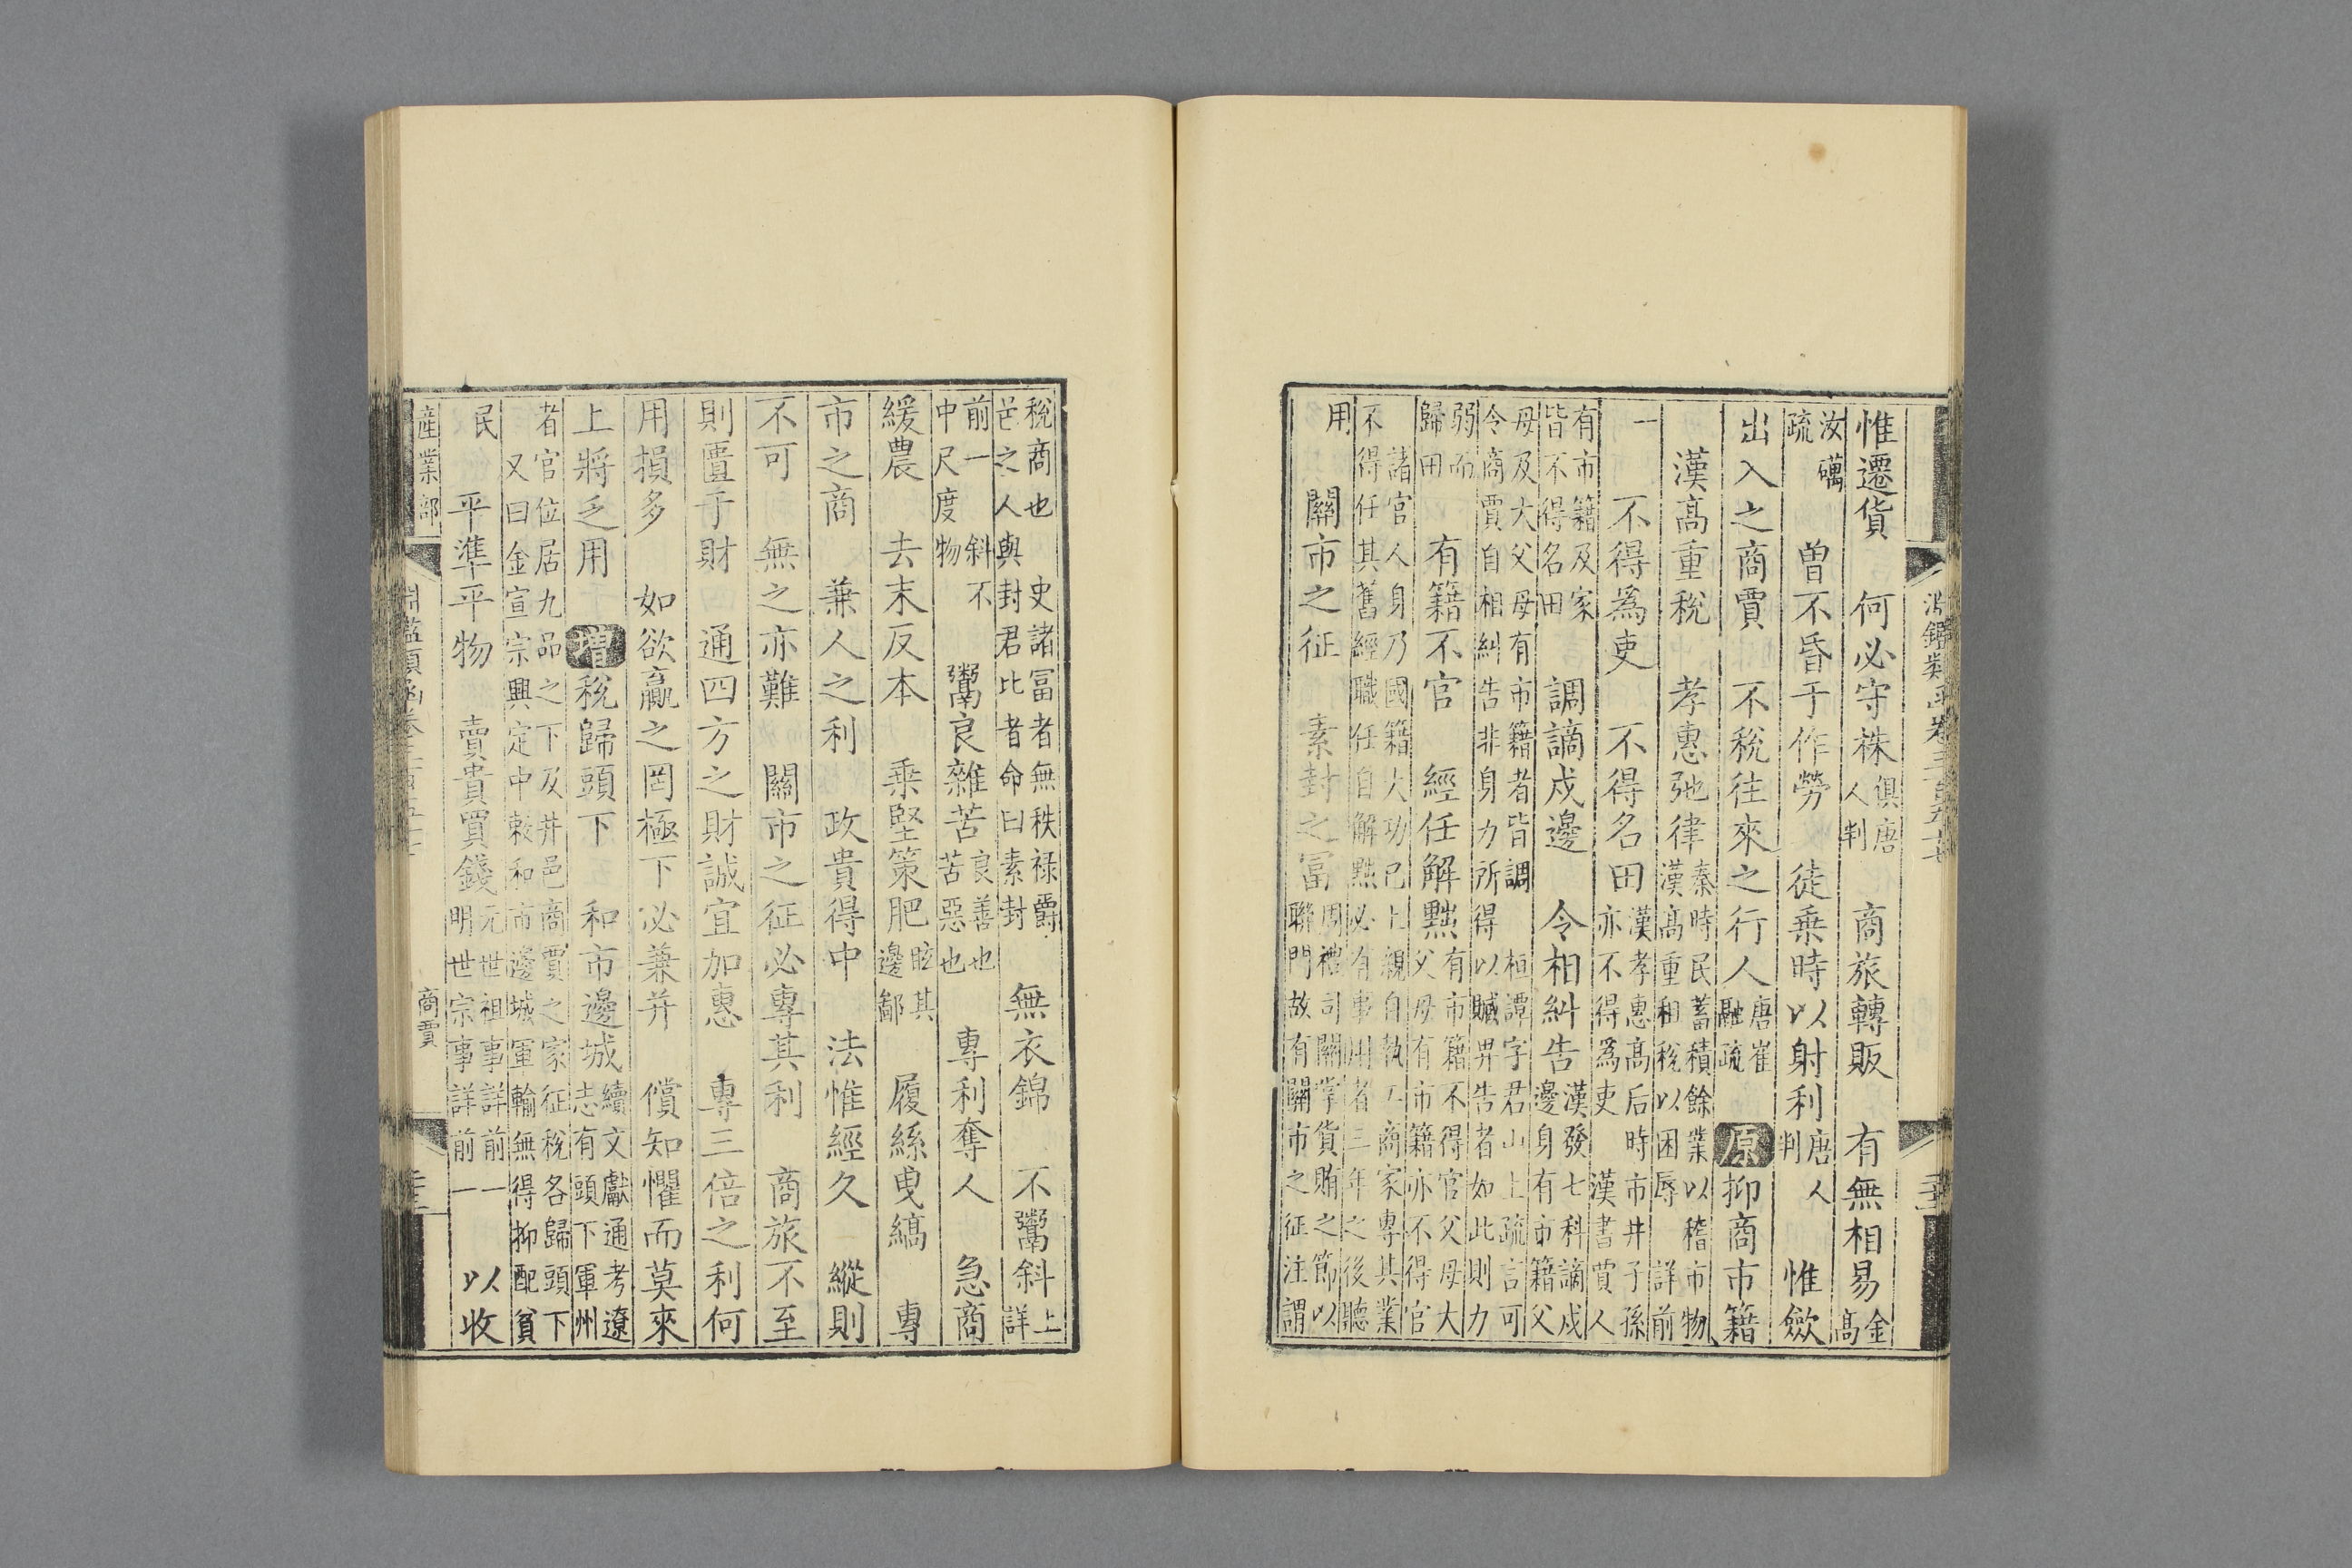 惟遷貨 何必守株俱唐人判 商旅轉販 有無相易金高
汝礪疏 曾不昏于作勞 徒乗時以射利唐人判 惟斂
出入之商賈 不稅往來之行人唐崔融疏 原抑商市籍
漢高重稅 孝惠弛律秦時民蓄積餘業以稽市物漢高重租稅以困辱 詳前
一 不得爲吏 不得名田漢孝惠高后時市井子孫亦不得爲吏 漢書賈人
有市籍及家皆不得名田 調謫戍邊 令相糾告漢發七科謫戍邊身有市籍父
母及大父母有市籍者皆調 桓譚字君山上疏言可令商賈自相糾告非身力所得以贓畀告者如此則力
弱而歸田 有籍不官 經任解黙有市籍不得官父母大父母有市籍亦不得官
諸官人身乃國籍大功已上親自執工商家專其業不得任其舊經職任自解黙必有事用者三年之後聽
用 關市之征 素封之富周禮司關掌貨賄之節以聯門故有關市之征注謂
稅商也 史諸富者無秩禄爵邑之人與封君比者命曰素封 無衣錦 不鬻斜上詳
前一 斜不中尺度物 鬻良雜苦良善也苦惡也 專利奪人 急商
緩農 去末反本 乗堅策肥眩其邊鄙 履絲曳縞 專
市之商 兼人之利 政貴得中 法惟經久 縱則
不可 無之亦難 關市之征必專其利 商旅不至
則匱于財 通四方之財誠宜加惠 專三倍之利何
用損多 如欲贏之罔極下必兼并 償知懼而莫來
上將乏用 增稅歸頭下 和市邊城續文獻通考遼志有頭下軍州
者官位居九品之下及井邑商賈之家征稅各歸頭下 又曰金宣宗興定中敕和市邊城軍輸無得抑配貧
民 平準平物 賣貴買錢元世祖事詳前一明世宗事詳前一 以收
産業部 淵鑑類函卷三百五十七 商賈